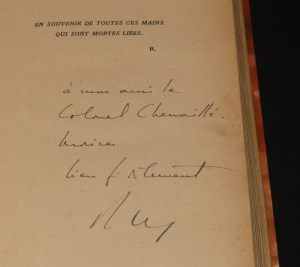 EN SOUVENIR DE TOUTES CES MAINS
QUI SONT MORTES LIÉES.
R.
à mon ami le
Colonel Chenaillé.
bien fidèlement